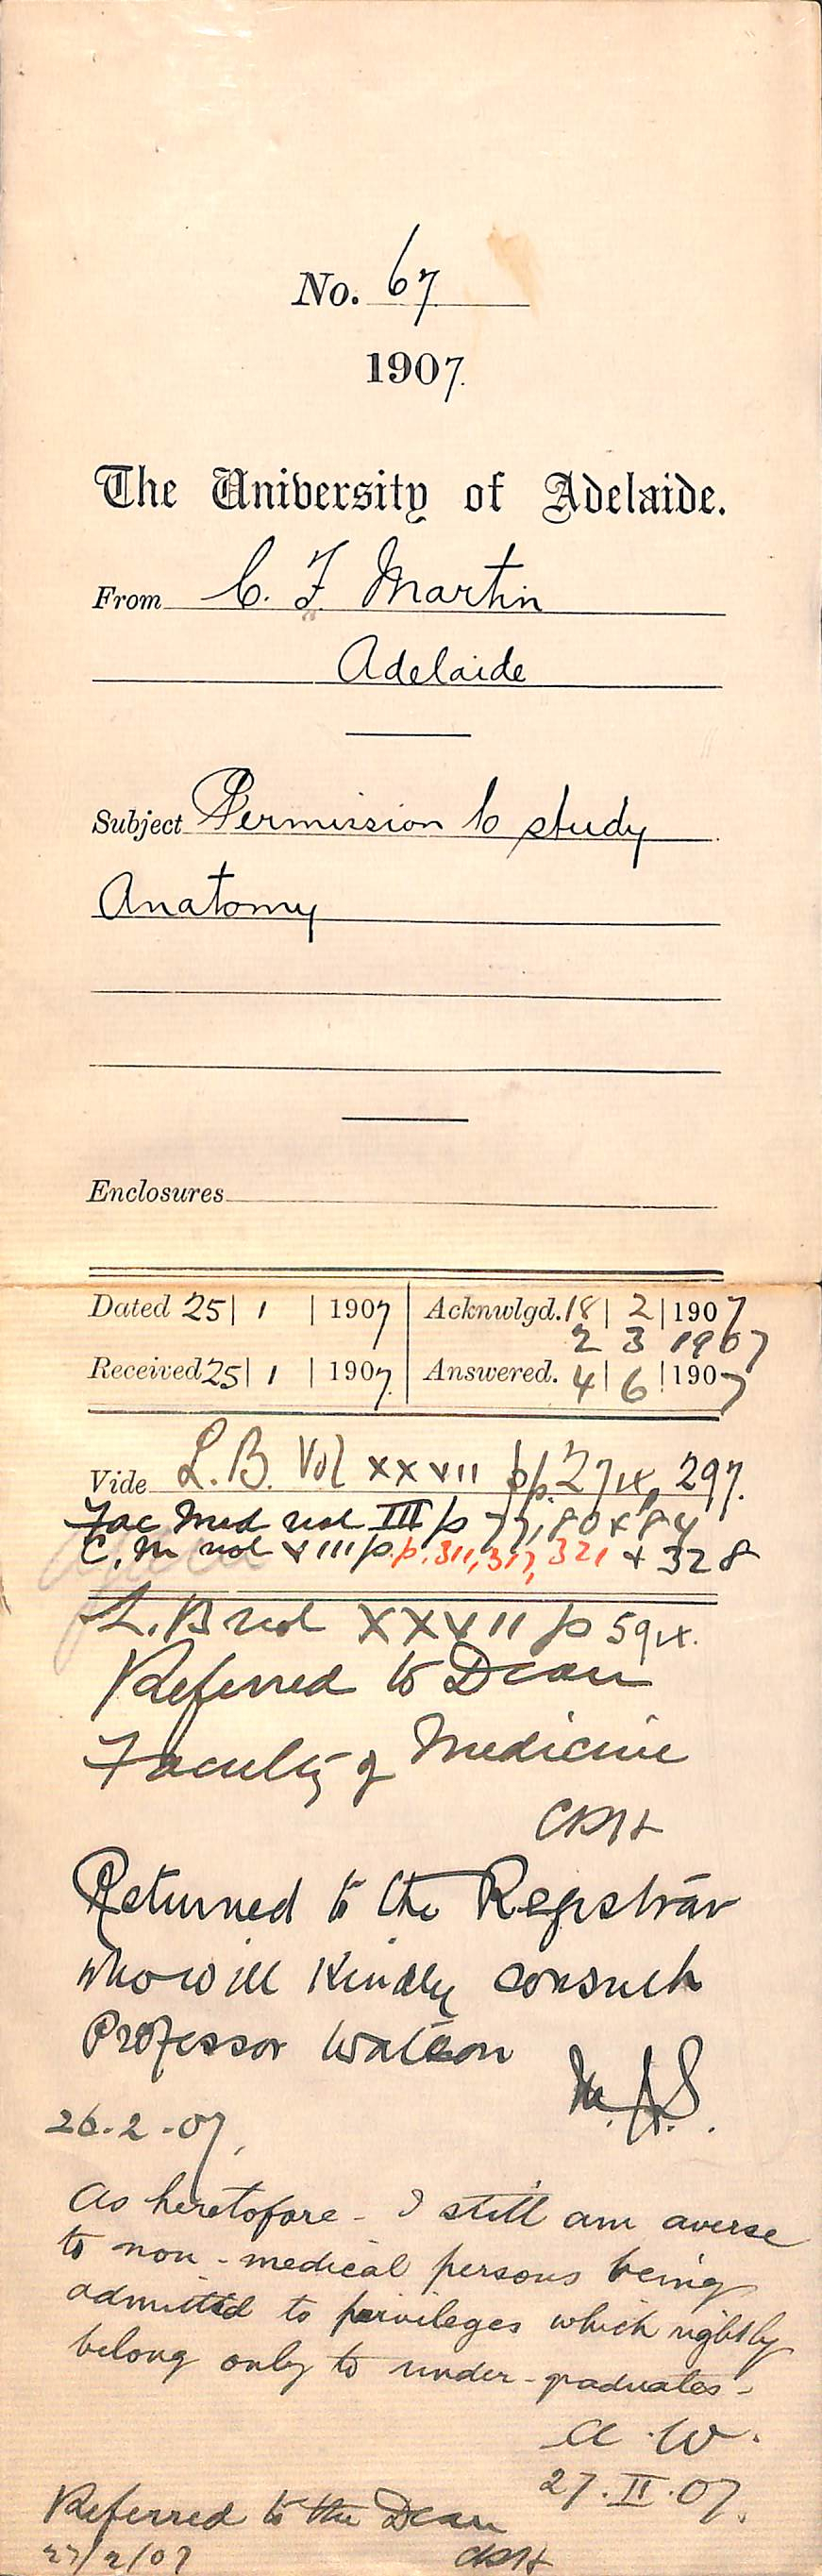 No. 67
1907.
The University of Adelaide.
From C. F. Martin
Adelaide
Subject Permission to study
Anatomy
Enclosures
Dated 25 | 1 | 1907 Acknwlgd. 18 | 2 | 1907
2 3 1907
Received 25 | 1 | 1907. Answered. 4 | 6 | 1907
Vide L.B. Vol XXVII pp. 274, 297.
Fac Med vol III p 77, 80 & 84
C.M vol XVIII p.p. 311, 317, 321 + 328
L.B vol XXVII p 594.
Referred to Dean
Faculty of Medicine
CRH
Returned to the Registrar
who will kindly consult
Professor Watson
26.2.07.
As heretofore - I still am averse
to non-medical persons being
admitted to privileges which rightly
belong only to under-graduates -
A.W.
27.II.07.
Referred to the Dean
27/2/07 CRH